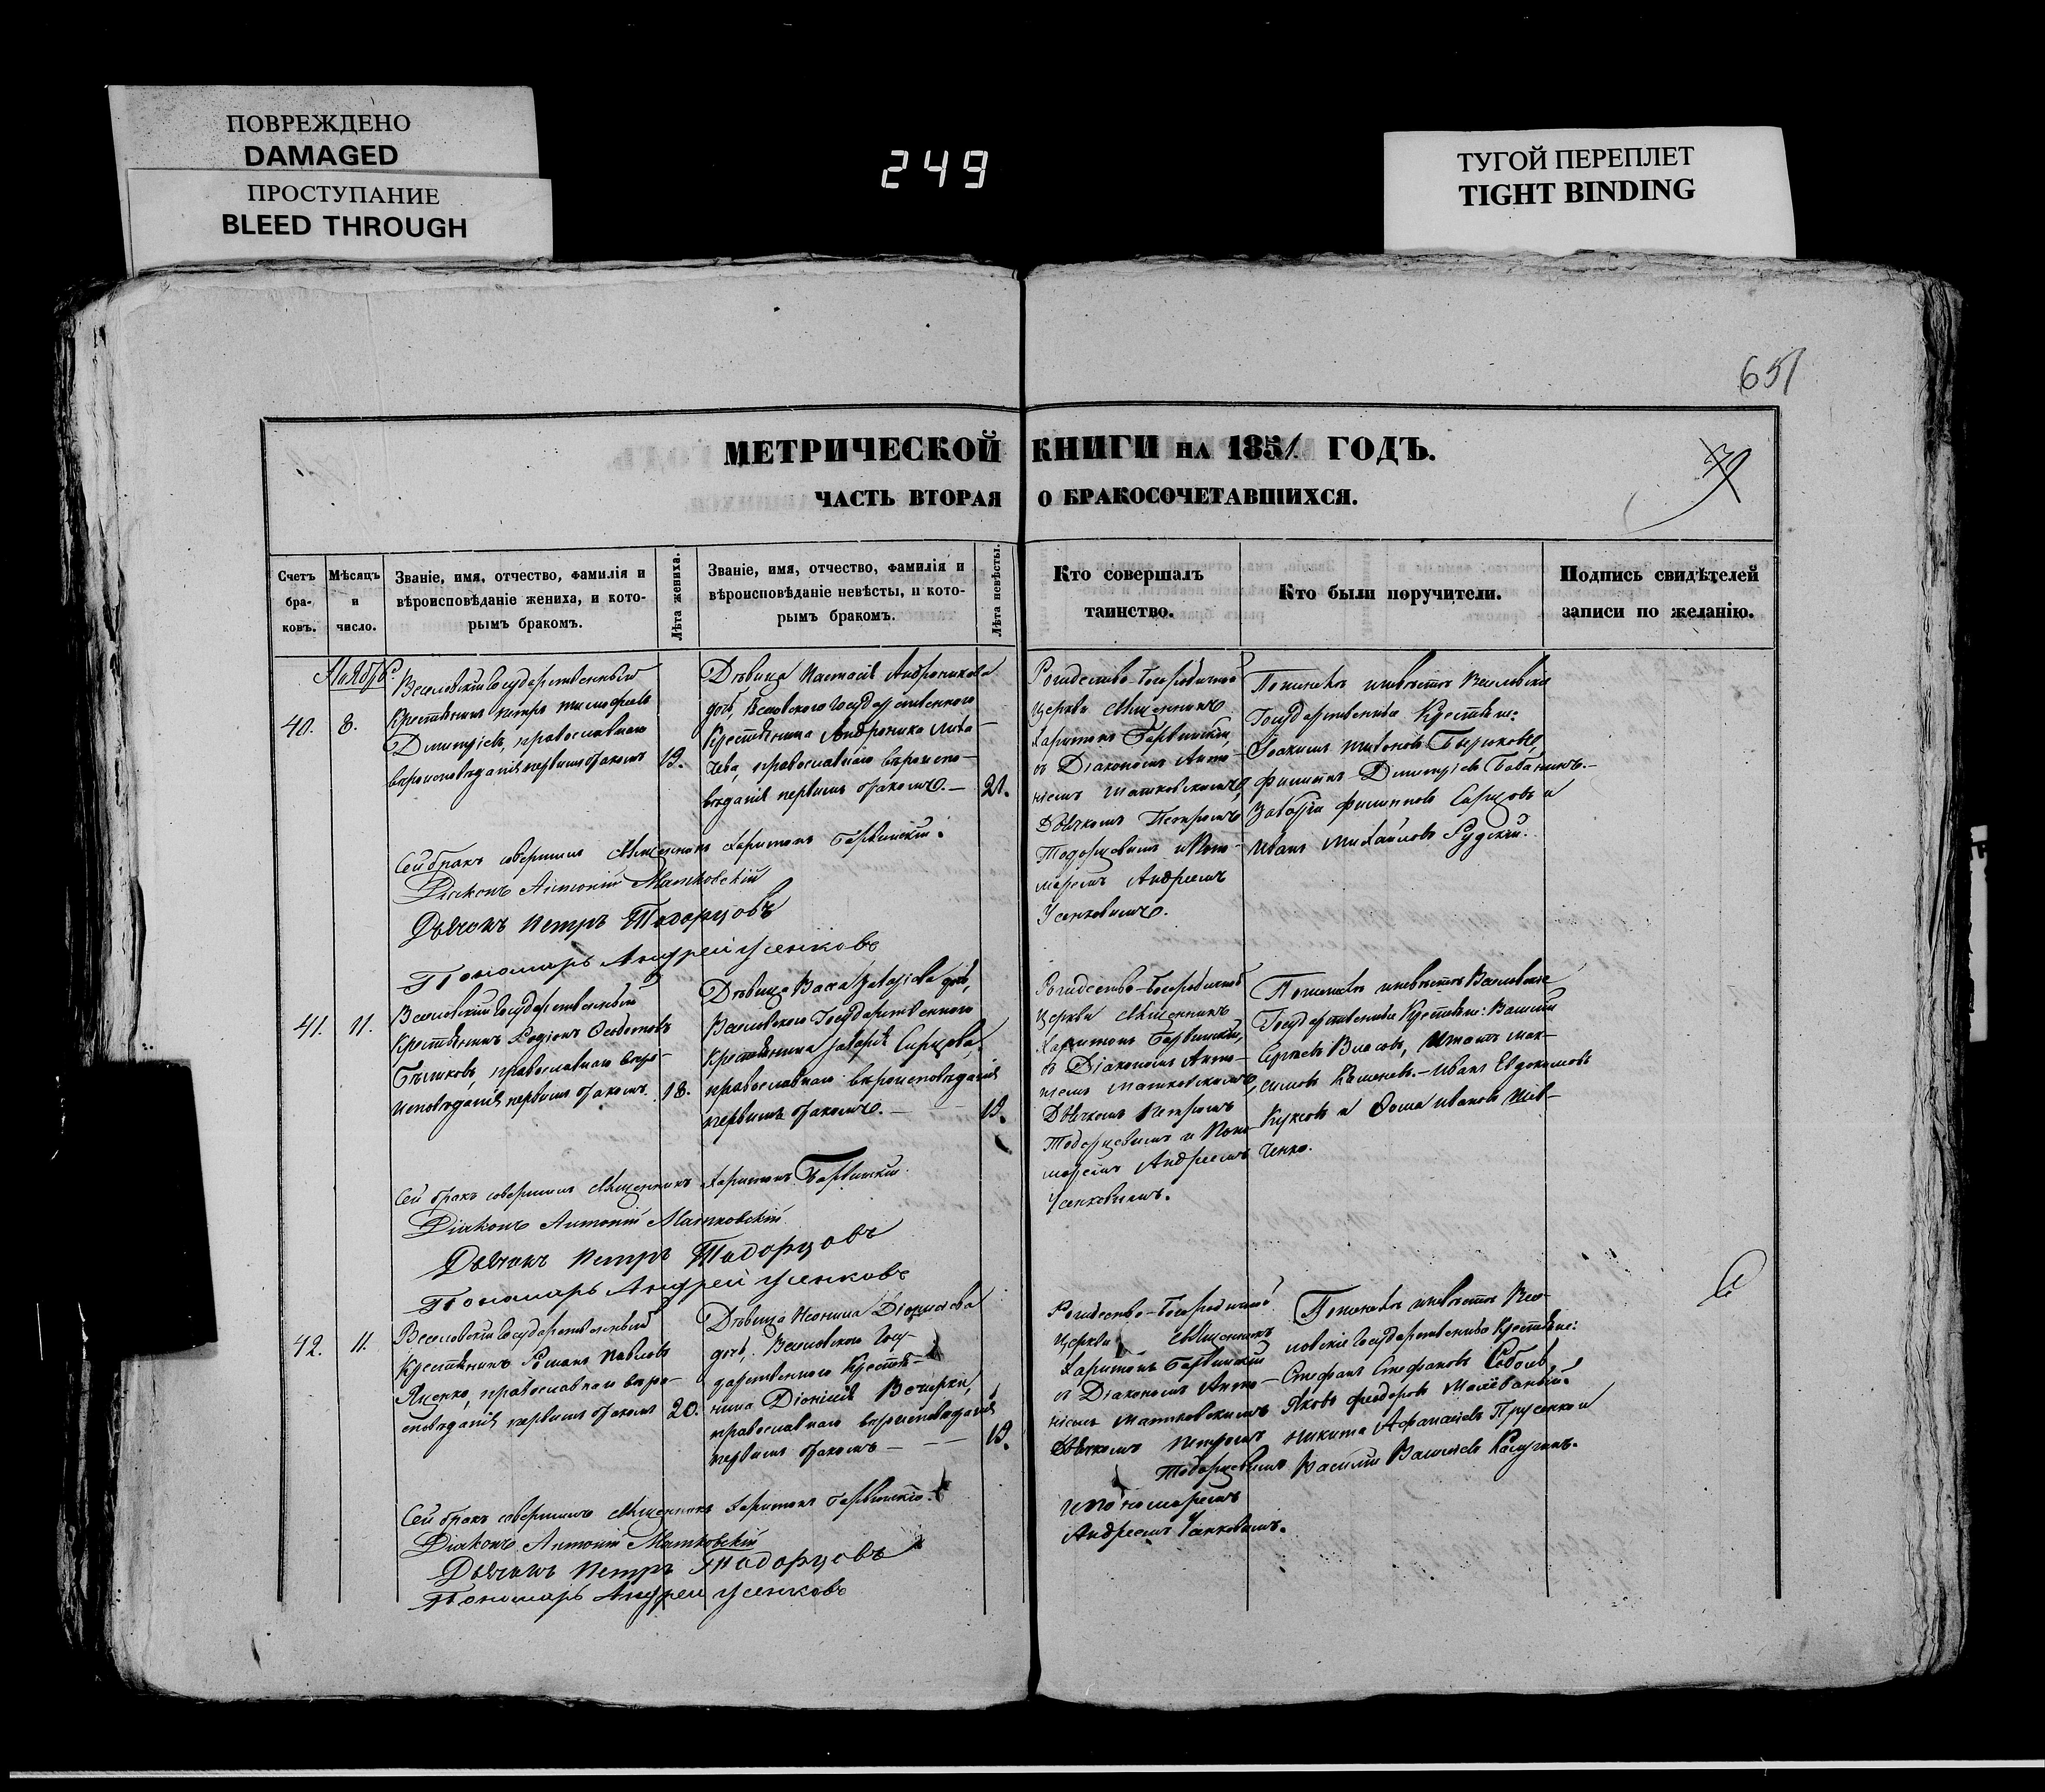 ПОВРЕЖДЕНО
DAMAGED
ПРОСТУПАНИЕ
BLEED THROUGH
249
ТУГОЙ ПЕРЕПЛЕТ
TIGHT BINDING
651
МЕТРИЧЕСКОЙ КНИГИ НА 1851 ГОДЪ.
ЧАСТЬ ВТОРАЯ О БРАКОСОЧЕТАВШИХСЯ.
Счетъ бра-ковъ.
Мѣсяцъ и число.
Званіе, имя, отчество, фамилія и
вѣроисповѣданіе жениха, и кото-
рымъ бракомъ.
Лѣта жениха.
Званіе, имя, отчество, фамилія и
вѣроисповѣданіе невѣсты, и кото-
рымъ бракомъ.
Лѣта невѣсты.
Кто совершалъ
таинство.
Кто были поручители.
Подпись свидѣтелей
записи по желанію.
Ноябрь.
40. 8.
Веселовскій Государственный
Крестьянинъ Петръ Тимофеевъ
Дмитріевъ, православнаго
вѣроисповѣданія первымъ бракомъ
19.
Дѣвица Настасія Андроникова
дочь, Веселовскаго Государственнаго
Крестьянина Андроника
православнаго вѣроиспо-
вѣданія первымъ бракомъ.—
21.
Рождество-Богородичной
Церкви Священникъ
Харитонъ
съ Діакономъ Анто-
ніемъ Матковскимъ,
Дьячкомъ Петромъ
Тодорцовымъ и Поно-
маремъ Андреемъ
Усенковымъ.
По женихѣ и невѣстѣ Веселовскіе
Государственные Крестьяне:
Іоакимъ Бирюковъ,
Филиппъ Дмитріевъ Бабанинъ.—
Захарій Филипповъ Сирцовъ и
Иванъ Михайловъ Рудскій.
Сей бракъ совершилъ Священникъ Харитонъ
Діаконъ Антоній Матковскій
Дьячокъ Петръ Тодорцовъ
Пономарь Андрей Усенковъ
41. 11.
Веселовскій Государственный
Крестьянинъ Родіонъ
православнаго вѣро-
исповѣданія первымъ бракомъ.
18.
Дѣвица Васса Захаріева дочь,
Веселовскаго Государственнаго
Крестьянина Захарія Сирцова,
православнаго вѣроисповѣданія
первымъ бракомъ.—
19.
Рождество-Богородичной
Церкви Священникъ
Харитонъ
съ Діакономъ Анто-
ніемъ Матковскимъ,
Дьячкомъ Петромъ
Тодорцовымъ и Поно-
маремъ Андреемъ
Усенковымъ.
По женихѣ и невѣстѣ Веселовскіе
Государственные Крестьяне: Василій
Сергѣевъ Власовъ, Мак-
симовъ — Иванъ Евдокимовъ
и Фома Ивановъ Шев-
ченко.
Сей бракъ совершилъ Священникъ Харитонъ
Діаконъ Антоній Матковскій
Дьячокъ Петръ Тодорцовъ
Пономарь Андрей Усенковъ
42. 11.
Веселовскій Государственный
Крестьянинъ Романъ Павловъ
Яценко, православнаго вѣро-
исповѣданія первымъ бракомъ
20.
Дѣвица Неонила Діонисіева
дочь, Веселовскаго Госу-
дарственнаго Крестья-
нина Діонисія
православнаго вѣроисповѣданія
первымъ бракомъ —
19.
Рождество-Богородичной
Церкви Священникъ
Харитонъ
съ Діакономъ Анто-
ніемъ Матковскимъ
Дьячкомъ Петромъ
Тодорцовымъ
и пономаремъ
Андреемъ Усенковымъ.
По женихѣ и невѣстѣ Весе-
ловскіе Государственные Крестьяне:
Стефанъ Стефановъ Соболь,
Яковъ Феодоровъ
Никита Афанасіевъ Прусенко и
Василій Васильевъ Калугинъ.
Сей бракъ совершилъ Священникъ Харитонъ
Діаконъ Антоній Матковскій
Дьячокъ Петръ Тодорцовъ
Пономарь Андрей Усенковъ